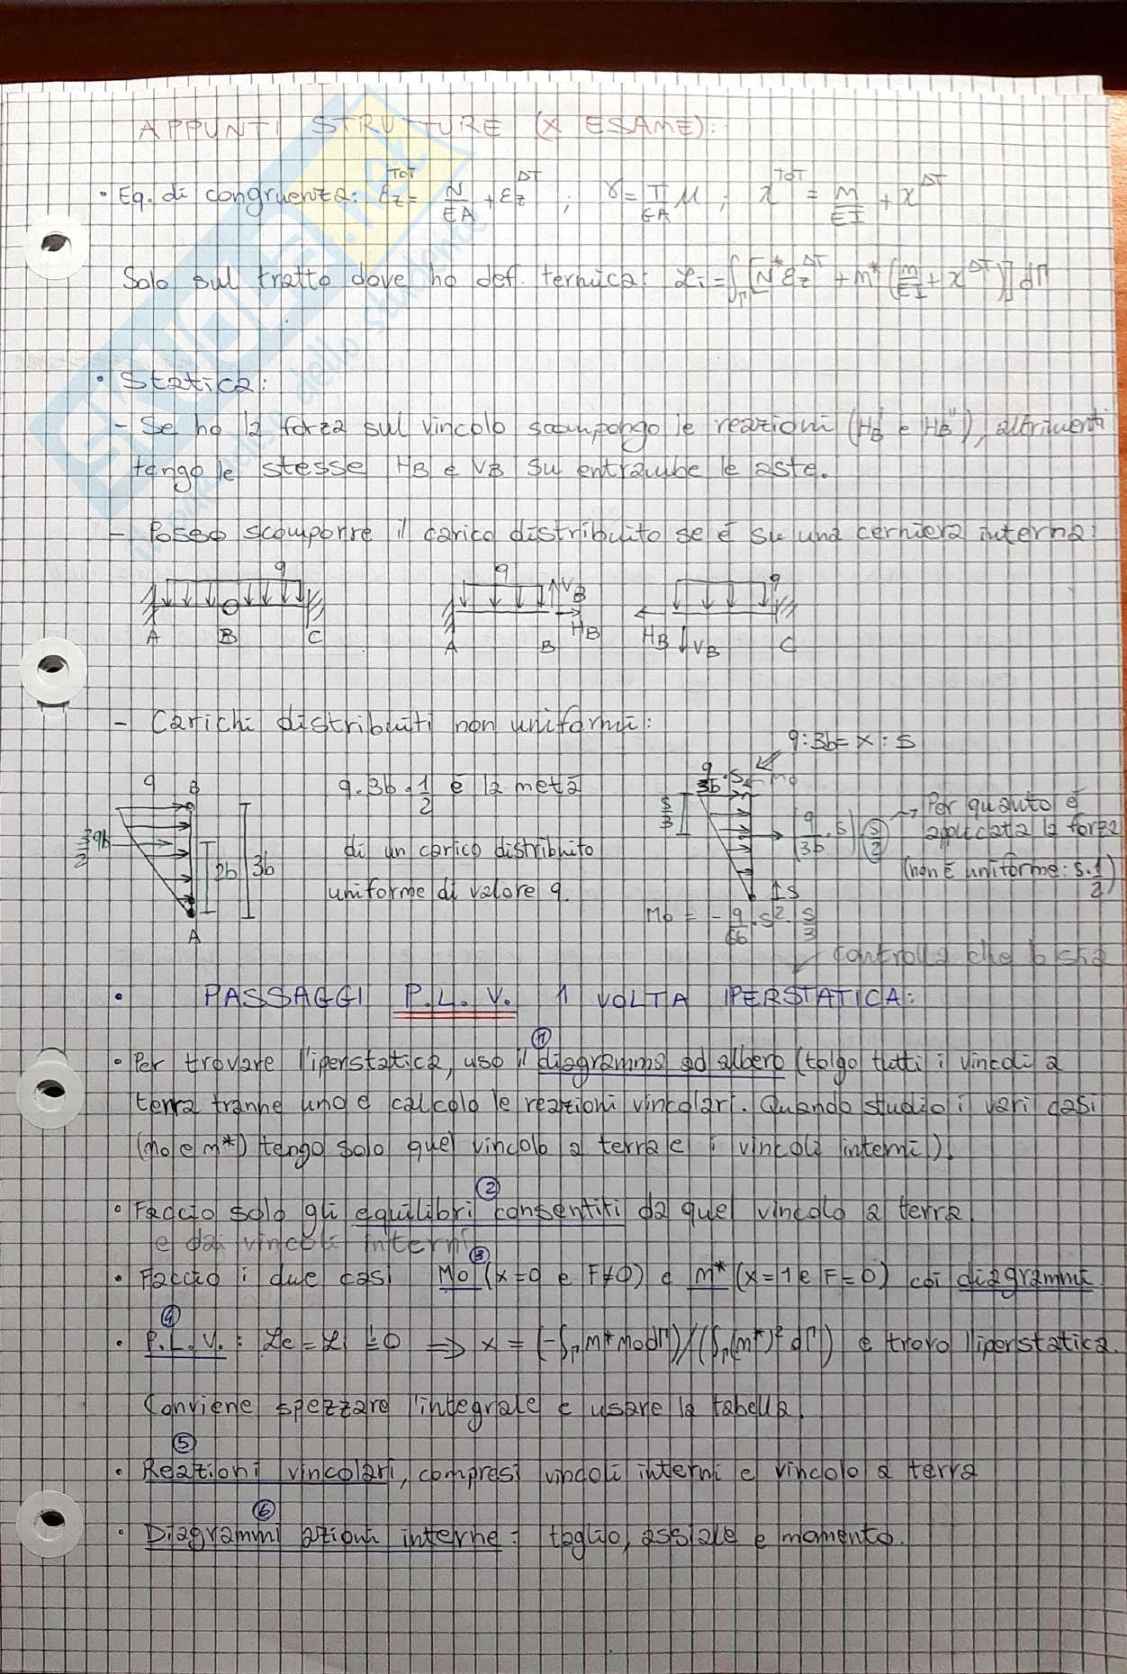 APPUNTI STRUTTURE (X ESAME):
• Eq. di congruenza: εz^TOT = N/EA + εz^ΔT ; γ = T/GA μ ; χ^TOT = M/EI + χ^ΔT
Solo sul tratto dove ho def. termica: Li = ∫Γ [N* εz^ΔT + m* (m/EI + χ^ΔT)] dΓ
• Statica:
- Se ho la forza sul vincolo scompongo le reazioni (HB' e HB''), altrimenti
tengo le stesse HB e VB su entrambe le aste.
- Posso scomporre il carico distribuito se è su una cerniera interna:
q q q
VB
HB HB VB
A B C A B C
- Carichi distribuiti non uniformi:
q:3b = x:s
q B q·3b·1/2 è la metà q/3b·s Mo
3/2 qb di un carico distribuito s/3 (q/3b·s) (s/2) → Per quanto è applicata la forza
2b 3b uniforme di valore q. (non è uniforme: s·1/2)
A Mo = - q/6b·s²·s/3 ↑s
controlla che b sia
• PASSAGGI P.L.V. 1 VOLTA IPERSTATICA:
①
• Per trovare l'iperstatica, uso il diagramma ad albero (tolgo tutti i vincoli a
terra tranne uno e calcolo le reazioni vincolari. Quando studio i vari casi
(Mo e m*) tengo solo quel vincolo a terra e i vincoli interni).
②
• Faccio solo gli equilibri consentiti da quel vincolo a terra
e dai vincoli interni
③
• Faccio i due casi Mo (x=0 e F≠0) e m* (x=1 e F=0) coi diagrammi
④
• P.L.V.: Le = Li = 0 ⇒ x = (-∫Γ m* Mo dΓ)/(∫Γ (m*)² dΓ) e trovo l'iperstatica.
Conviene spezzare l'integrale e usare la tabella.
⑤
• Reazioni vincolari, compresi vincoli interni e vincolo a terra
⑥
• Diagrammi azioni interne: taglio, assiale e momento.